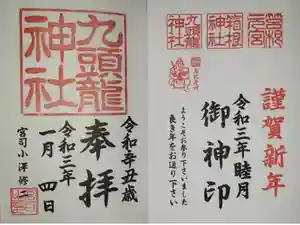 九頭龍
神社
令和辛丑歳
奉拝
令和三年
一月四日
宮司小澤修二
元宮
箱根
神社
九頭龍
神社
謹賀新年
令和三年睦月
御神印
ようこそお参り下さいました
良き年をお送り下さい